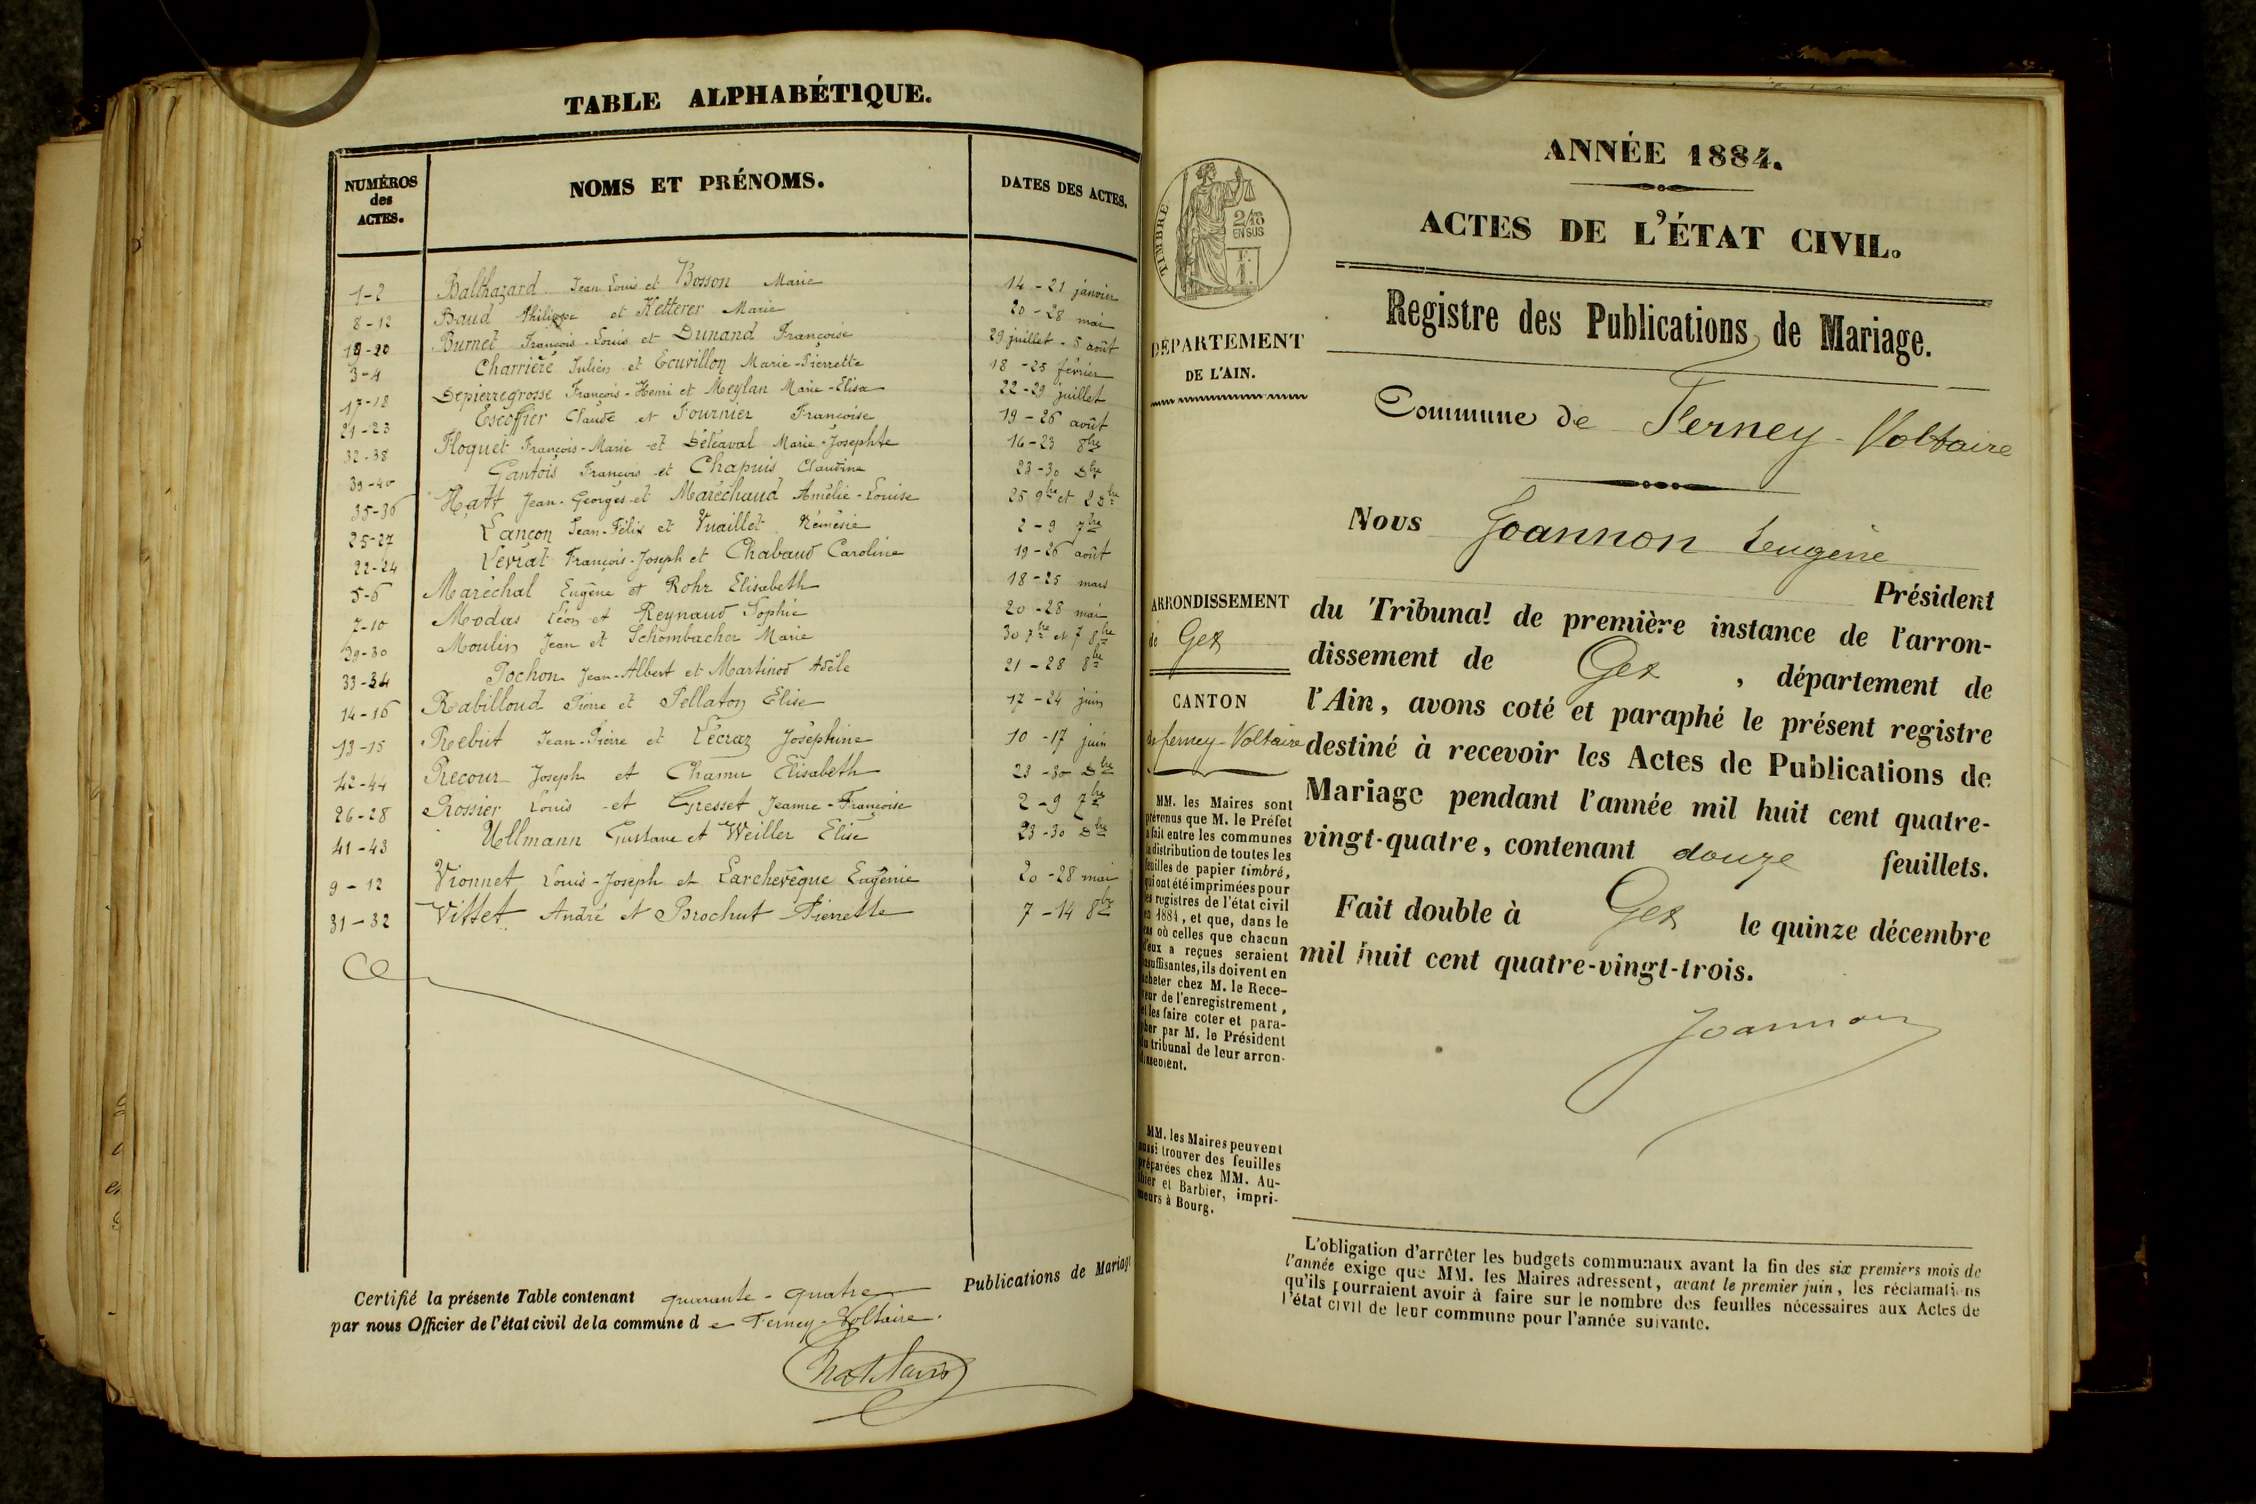 TABLE ALPHABÉTIQUE.
NUMÉROS
des
ACTES.
NOMS ET PRÉNOMS.
DATES DES ACTES.
1-2 Balthazard Jean Louis et Bosson Marie 14 - 21 janvier
8-12 Baud Philippe et Ketterer Marie 20 - 28 mai
19-20 Burnet François-Louis et Dunand Françoise 29 juillet - 5 août
3-4 Charrière Julien et Ecuvillon Marie-Pierrette 18 - 25 février
17-18 Depierregrosse François-Henri et Meylan Marie-Elisa 22-29 juillet
21-23 Escoffier Claude et Fournier Françoise 19 - 26 août
32-38 Floquet François-Marie et Déléaval Marie-Josephte 16-23 8bre
39-40 Gantois François et Chapuis Claudine 23-30 Dbre
35-36 Hatt Jean-Georges et Maréchaud Amélie-Louise 25 9bre et 2 Dbre
25-27 Lançon Jean-Félix et Vuaillet Némésie 2 - 9 7bre
22-24 Levrat François-Joseph et Chabaud Caroline 19-26 août
5-6 Maréchal Eugène et Rohr Elisabeth 18-25 mars
7-10 Modas Léon et Reynaud Sophie 20-28 mai
29-30 Moulin Jean et Schombacher Marie 30 7bre et 7 8bre
33-34 Pochon Jean-Albert et Martinod Adèle 21-28 8bre
14-16 Rabilloud Pierre et Pellaton Elise 17-24 juin
13-15 Rebut Jean-Pierre et Lécraz Joséphine 10-17 juin
42-44 Recour Joseph et Chamu Elisabeth 23-30 Dbre
26-28 Rossier Louis et Gresset Jeanne-Françoise 2-9 7bre
41-43 Ullmann Gustave et Weiller Elise 23-30 Dbre
9-12 Vionnet Louis-Joseph et Larchevêque Eugénie 20-28 mai
31-32 Vittet André et Brochut Pierrette 7-14 8bre
Certifié la présente Table contenant quarante-quatre Publications de Mariage
par nous Officier de l'état civil de la commune de Ferney-Voltaire.
ANNÉE 1884.
ACTES DE L'ÉTAT CIVIL.
TIMBRE
2/10
EN SUS
Registre des Publications de Mariage.
DÉPARTEMENT
DE L'AIN.
Commune de Ferney-Voltaire
Nous Joannon Eugène
Président
ARRONDISSEMENT
de Gex
CANTON
de Ferney-Voltaire
du Tribunal de première instance de l'arron-
dissement de Gex, département de
l'Ain, avons coté et paraphé le présent registre
destiné à recevoir les Actes de Publications de
Mariage pendant l'année mil huit cent quatre-
vingt-quatre, contenant douze feuillets.
Fait double à Gex le quinze décembre
mil huit cent quatre-vingt-trois.
Joannon
MM. les Maires sont
prévenus que M. le Préfet
a fait entre les communes
la distribution de toutes les
feuilles de papier timbré,
qui ont été imprimées pour
les registres de l'état civil
en 1884, et que, dans le
cas où celles que chacun
d'eux a reçues seraient
insuffisantes, ils doivent en
acheter chez M. le Rece-
veur de l'enregistrement,
et les faire coter et para-
pher par M. le Président
du tribunal de leur arron-
dissement.
MM. les Maires peuvent
aussi trouver des feuilles
préparées chez MM. Au-
thier et Barbier, impri-
meurs à Bourg.
L'obligation d'arrêter les budgets communaux avant la fin des six premiers mois de
l'année exige que MM. les Maires adressent, avant le premier juin, les réclamations
qu'ils pourraient avoir à faire sur le nombre des feuilles nécessaires aux Actes de
l'état civil de leur commune pour l'année suivante.